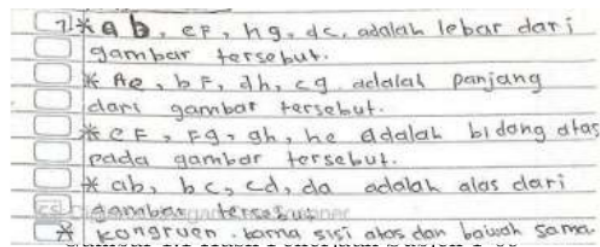 7. * a b, eF, hg, dc, adalah lebar dari
gambar tersebut.
* Ae, bF, dh, cg adalah panjang
dari gambar tersebut.
* eF, Fg, gh, he adalah bidang atas
pada gambar tersebut.
* ab, bc, cd, da adalah alas dari
gambar tersebut
* kongruen. karna sisi atas dan baiwah sama.